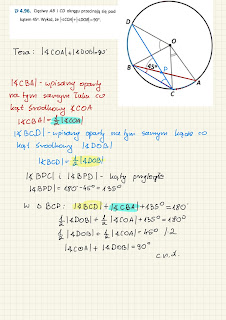 D 4.96. Cięciwy AB i CD okręgu przecinają się pod
kątem 45°. Wykaż, że |∢COA|+|∢DOB|=90°.
Teza: |∢COA|+|∢DOB|=90°
|∢CBA| - wpisany oparty
na tym samym łuku co
kąt środkowy ∢COA
|∢CBA| = ½|∢COA|
|∢BCD| - wpisany oparty na tym samym łuku co
kąt środkowy |∢DOB|
|∢BCD| = ½|∢DOB|
|∢BPC| i |∢BPD| - kąty przyległe
|∢BPD| = 180°-45° = 135°
W Δ BCP: |∢BCD|+|∢CBA|+135°=180°
½|∢DOB|+½|∢COA|+135°=180°
½|∢DOB|+½|∢COA|=45° /·2
|∢COA|+|∢DOB|=90°
c.n.d.
D
O
45°
P
B
A
C